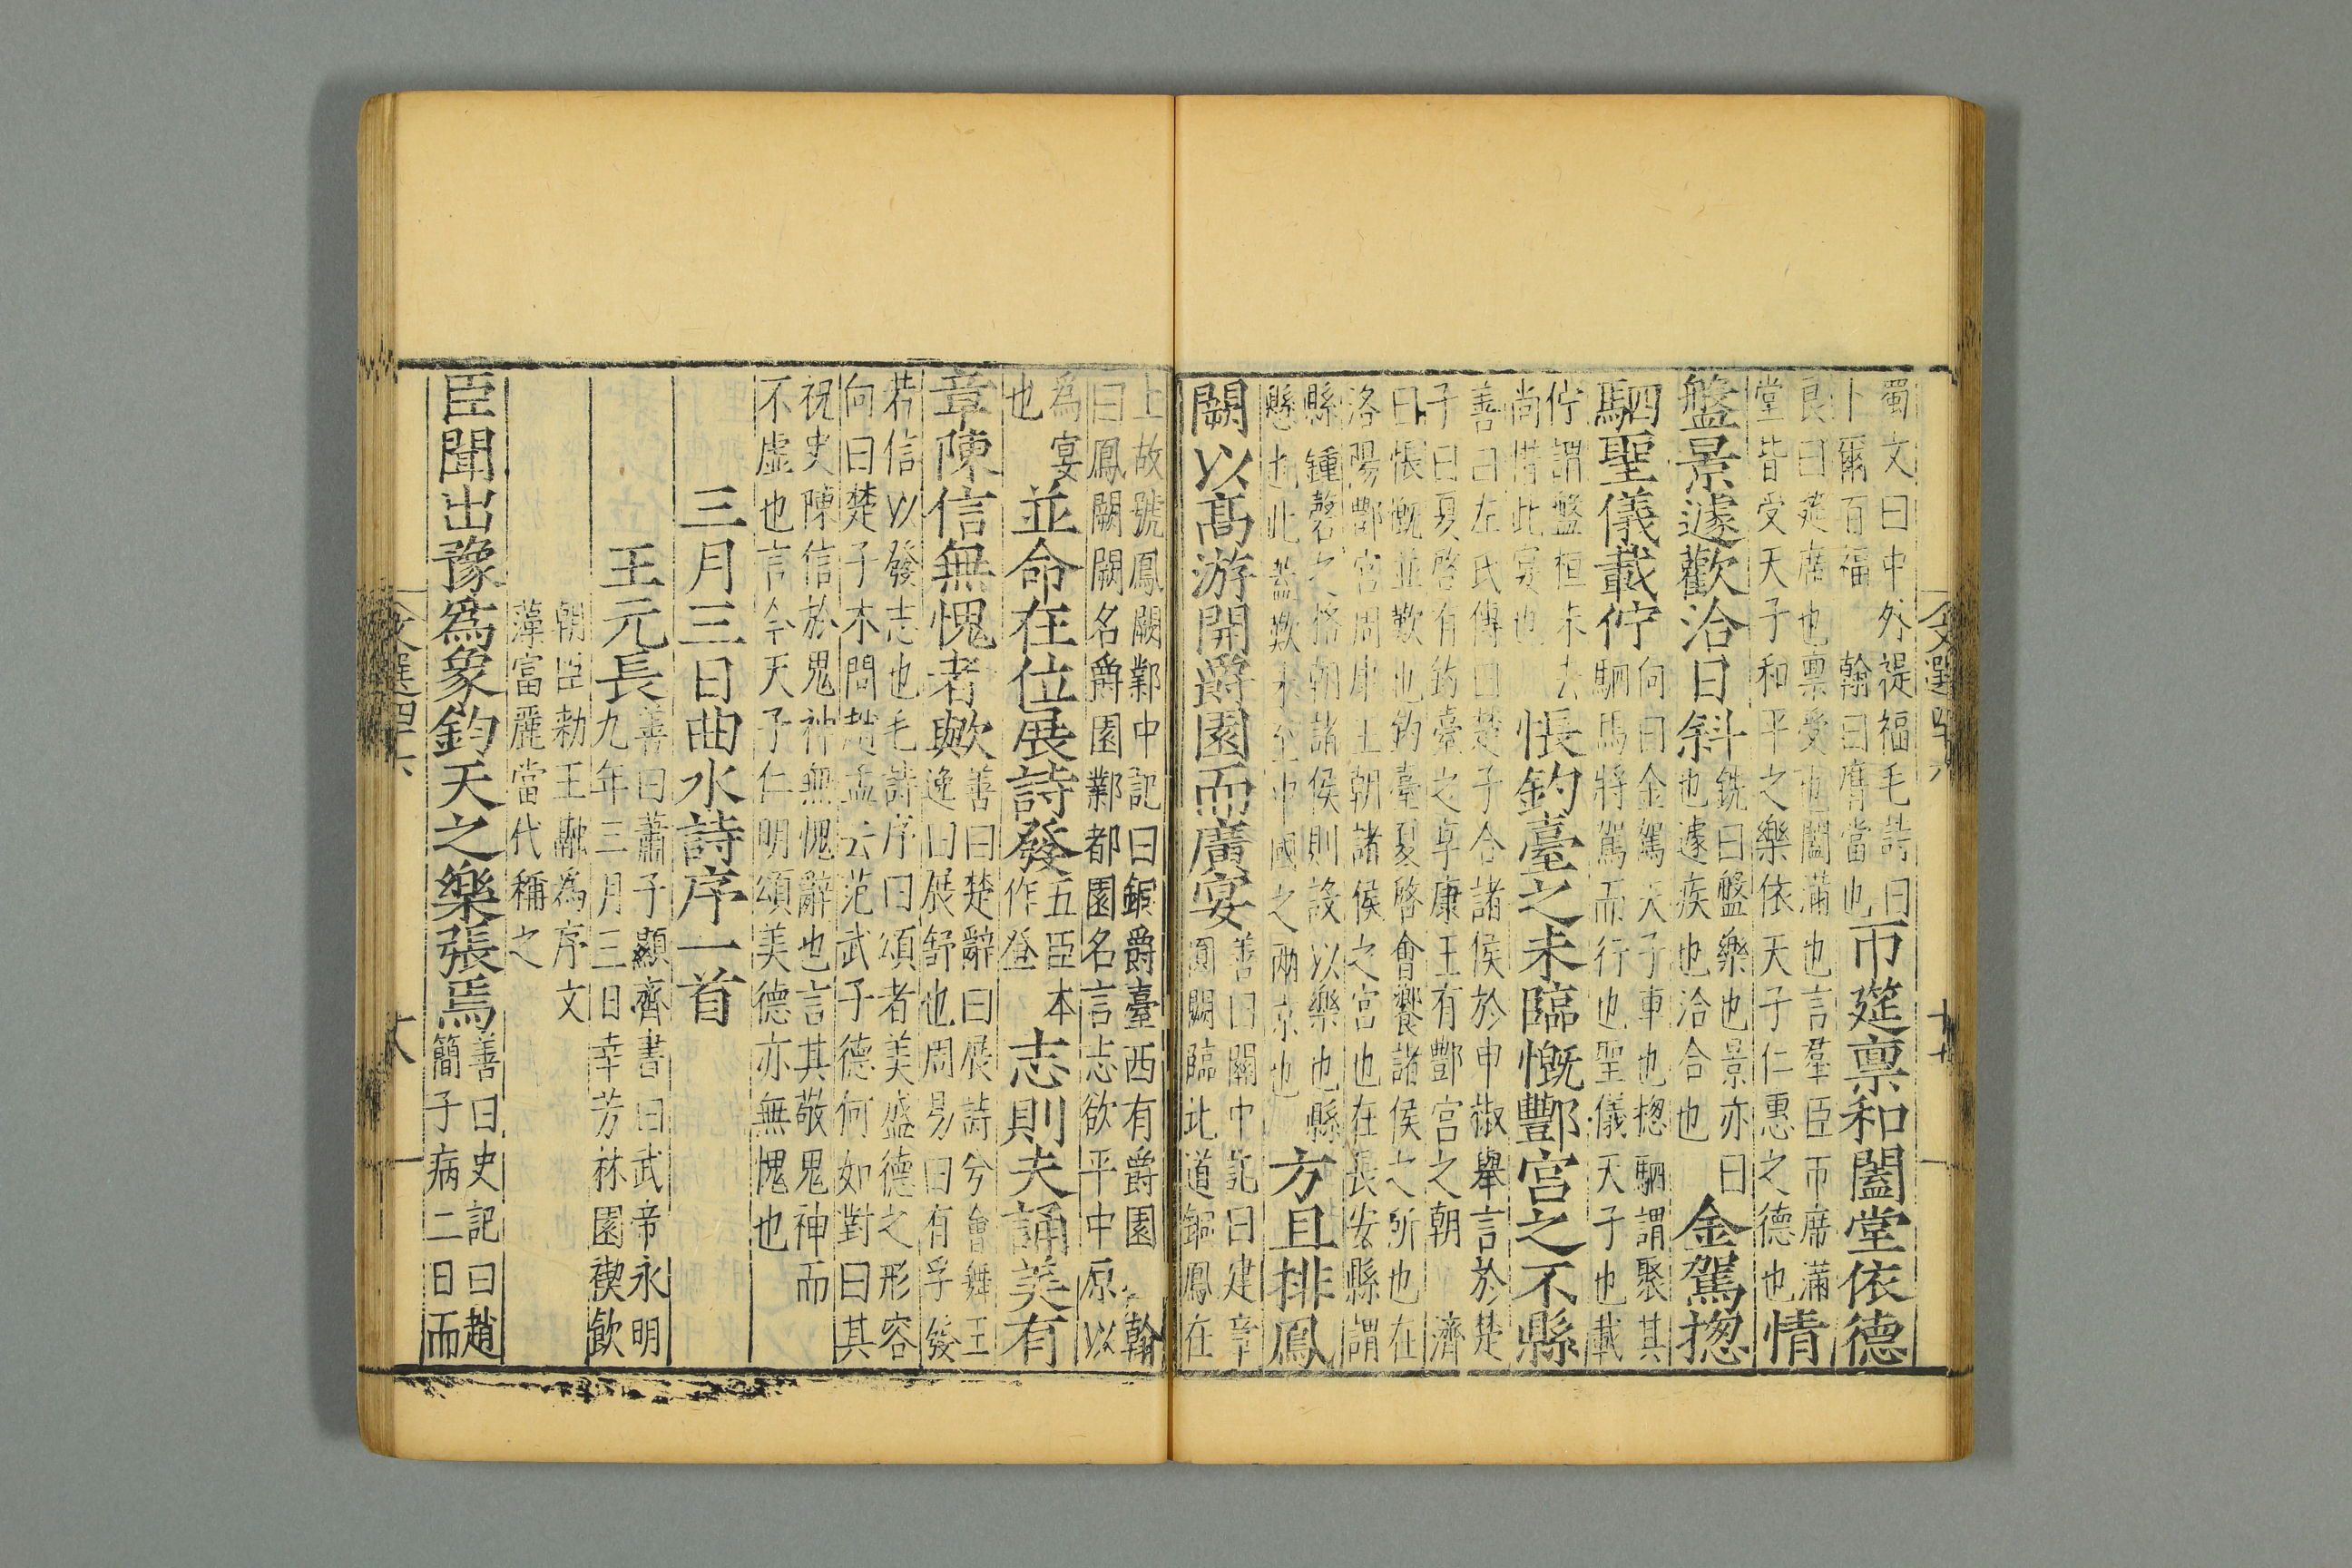 蜀文曰中外禔福毛詩曰
卜爾百福　翰曰膺當也
帀筵禀和闔堂依德
良曰筵席也禀受也闔滿也言羣臣帀席滿
堂皆受天子和平之樂依天子仁惠之德也
情
盤景遽歡洽日斜
銑曰盤樂也景亦日
也遽疾也洽合也
金駕揔
駟聖儀載佇
向曰金駕天子車也揔駟謂聚其
駟馬將駕而行也聖儀天子也載
佇謂盤桓未去
尚惜此宴也
悵鈞臺之未臨慨酆宮之不縣
善曰左氏傳曰楚子合諸侯於申椒舉言於楚
子曰夏啓有鈞臺之享康王有酆宮之朝　濟
曰悵慨並歎也鈞臺夏啓會饗諸侯之所也在
洛陽酆宮周康王朝諸侯之宮也在長安縣謂
縣鍾磬之格朝諸侯則設以樂也縣
懸也此蓋歎未至中國之兩京也
方且排鳳
闕以髙游開爵園而廣宴
善曰關中記曰建章
圓闕臨北道銅鳳在
上故號鳳闕鄴中記曰銅爵臺西有爵園　翰
曰鳳闕闕名爵園鄴都園名言志欲平中原以
為宴
也
並命在位展詩發
五臣本
作登
志則夫誦美有
章陳信無愧者歟
善曰楚辭曰展詩兮會舞王
逸曰展舒也周易曰有孚發
若信以發志也毛詩序曰頌者美盛德之形容
向曰楚子木問趙孟云范武子德何如對曰其
祝史陳信於鬼神無愧辭也言其敬鬼神而
不虛也言今天子仁明頌美德亦無愧也
三月三日曲水詩序一首
王元長
善曰蕭子顯齊書曰武帝永明
九年三月三日幸芳林園禊飲
朝臣勑王融為序文
藻富麗當代稱之
臣聞出豫爲象鈞天之樂張焉
善曰史記曰趙
簡子病二日而